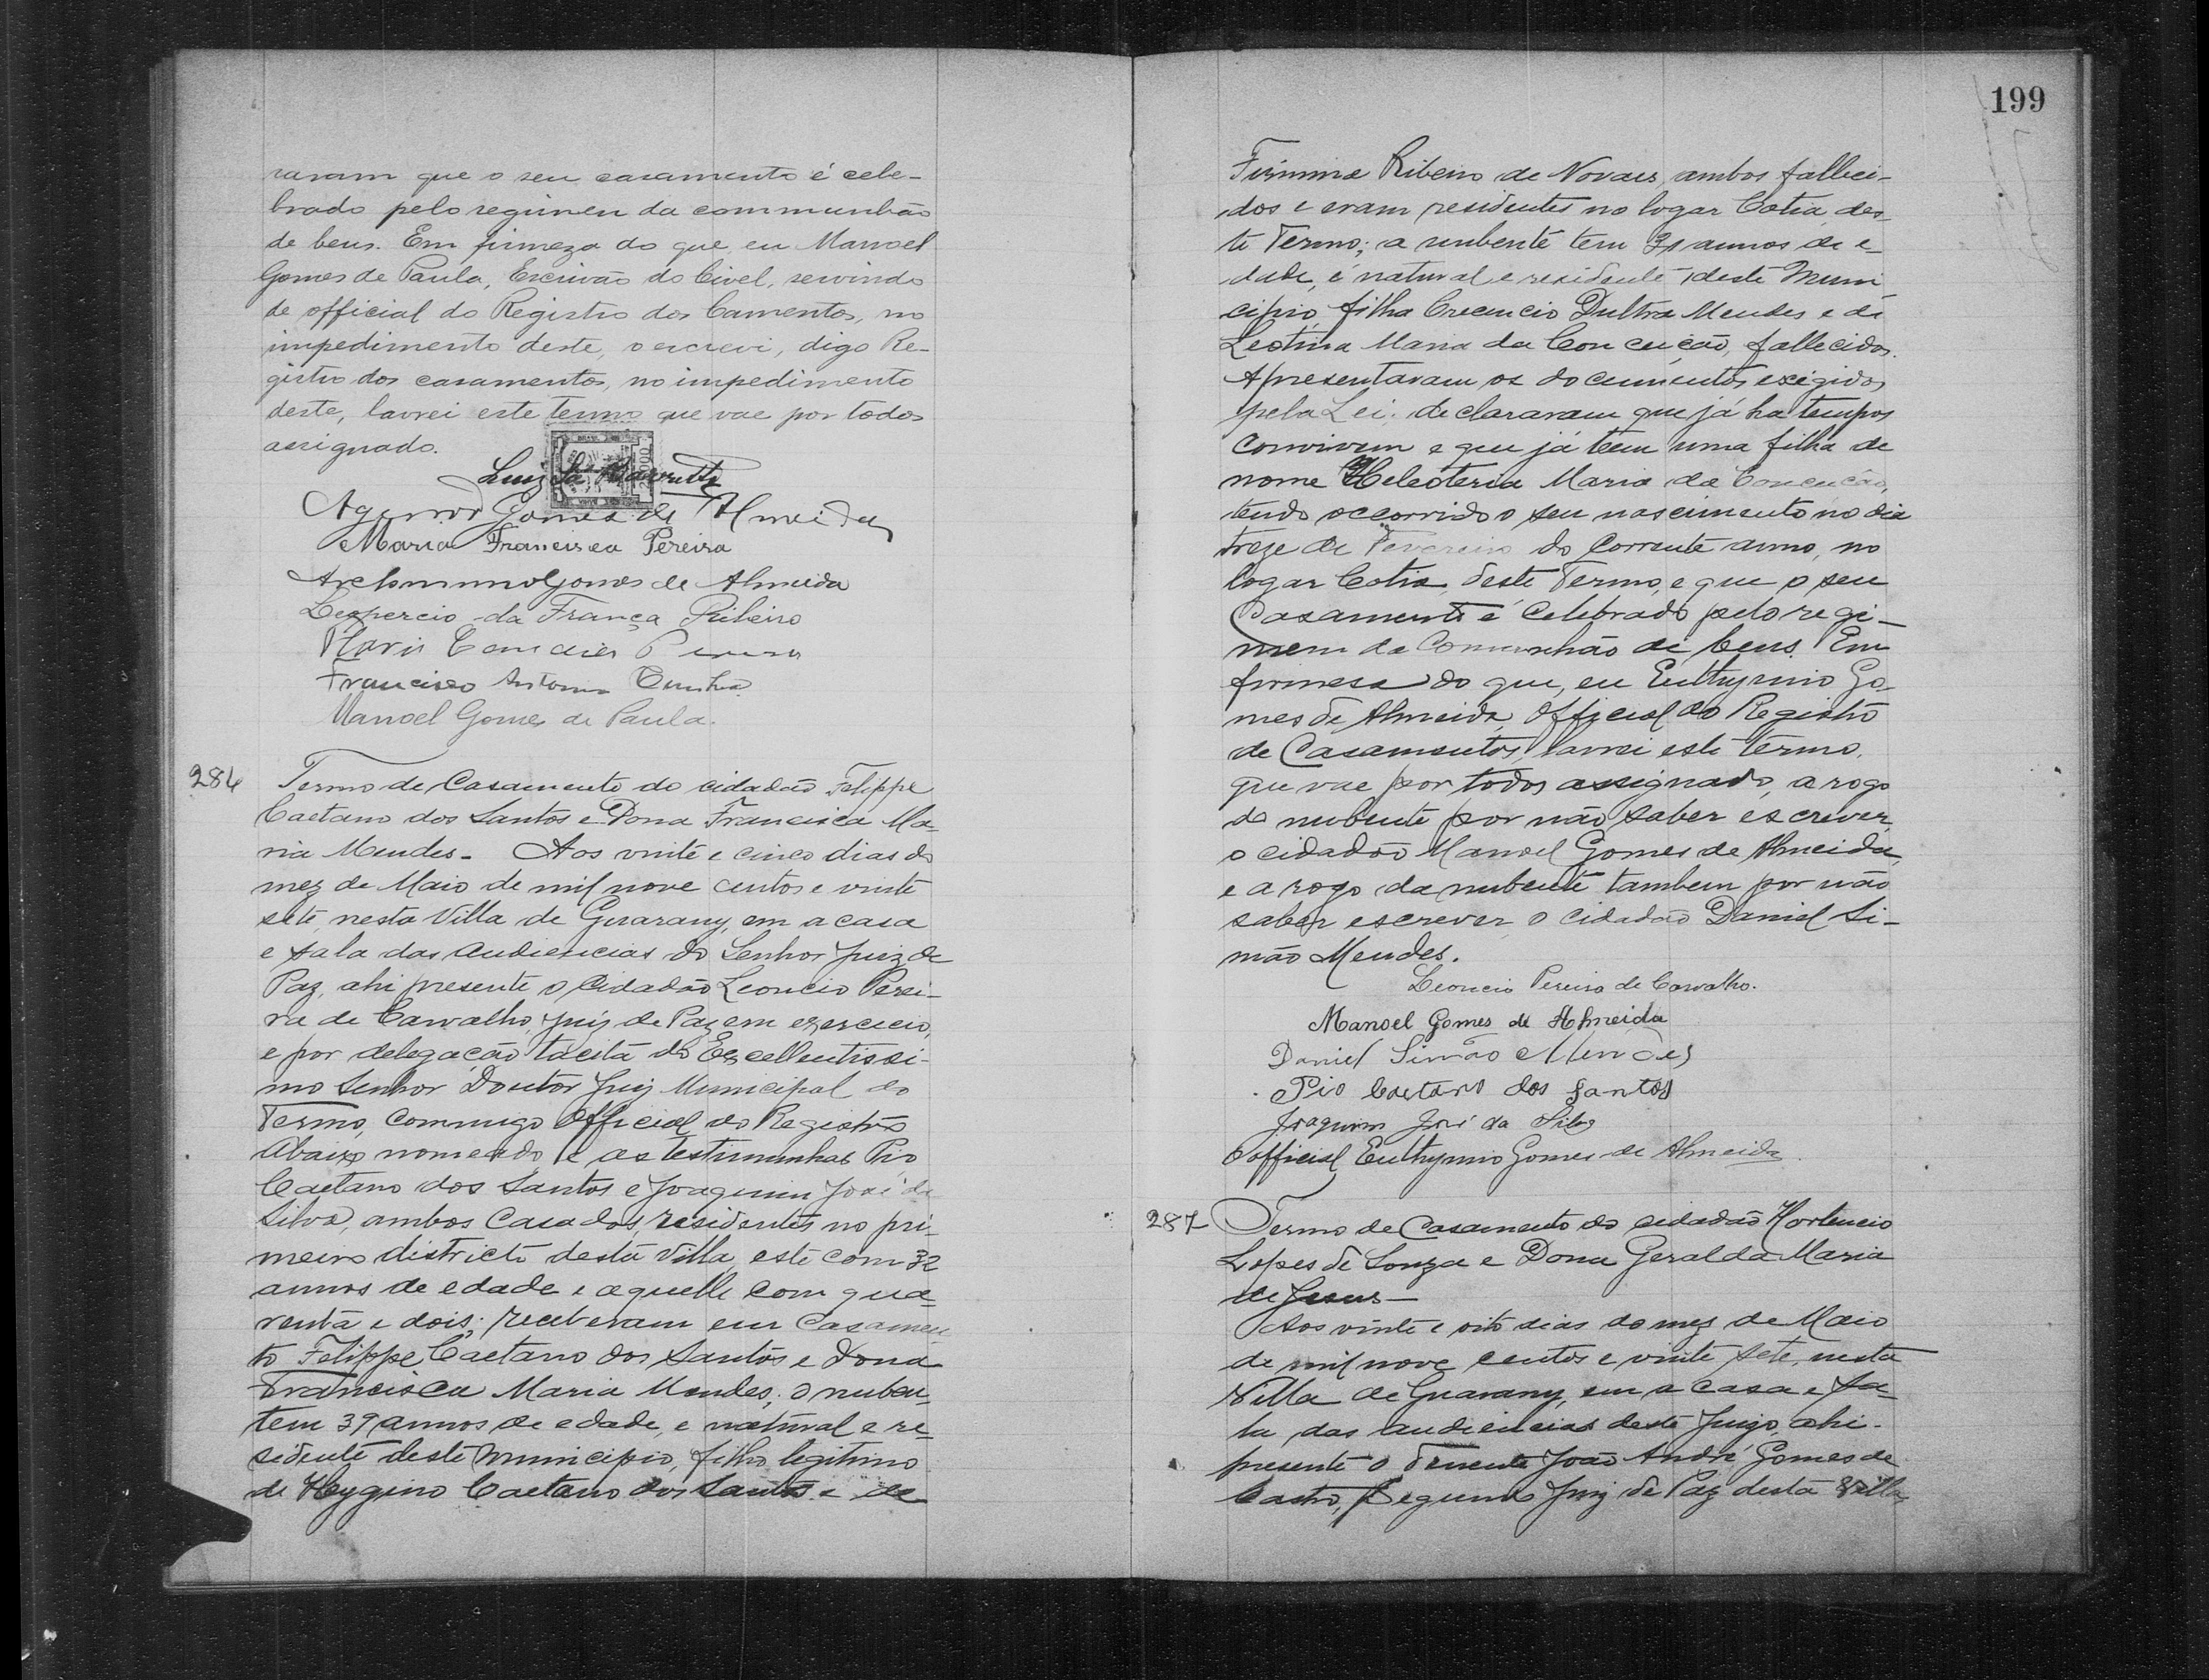 raram que o seu casamento é cele-
brado pelo regimen da communhão
de bens. Em firmeza do que, eu Manoel
Gomes de Paula, Escrivão do Civel, servindo
de official do Registro dos Camentos, no
impedimento deste, o escrevi, digo Re-
gistro dos casamentos, no impedimento
deste, lavrei este termo que vae por todos
assignado.
Luiz Sá Barretto
Agenor Gomes de Almeida
Maria Francisca Pereira
Archiminio Gomes de Almeida
da França Ribeiro
Francisco Antonio Cunha
Manoel Gomes de Paula.
286 Termo de Casamento do cidadão Felippe
Caetano dos Santos e Dona Francisca Ma-
ria Mendes. Aos vinte e cinco dias do
mez de Maio de mil nove centos e vinte
sete, nesta Villa de Guarany, em a casa
e sala das audiencias do Senhor Juiz de
Paz, ahi presente o Cidadão Leoncio Perei-
ra de Carvalho, Juiz de Paz em exercicio,
e por delegação tacita do Excellentissi-
mo Senhor Doutor Juiz Municipal do
Termo, commigo Official do Registro
abaixo nomeado, e as testimunhas Pio
Caetano dos Santos e Joaquim José da
Silva, ambos Casados, residentes no pri-
meiro districto desta Villa, este com 32
annos de edade e aquelle com qua-
renta e dois; receberam em Casamen
to Felippe Caetano dos Santos e Dona
Francisca Maria Mendes; o nuben-
tem 39 annos de edade, e natural e re-
sidente deste Municipio, filho legitimo
de Hygino Caetano dos Santos e de
199
Firmina Ribeiro de Novaes, ambos falleci-
dos e eram residentes no logar Cotia des-
te Termo; a nubente tem 31 annos de e-
dade, é natural e residente deste Muni
cipio, filha Crecencio Dultra Mendes e de
Leotina Maria da Conceição, fallecidos.
Apresentaram os documentos exigidos
pela Lei. declararam que já ha tempos
convivem e que já tem uma filha de
nome Heleoteria Maria da Conceição,
tendo occorrido o seu nascimento no dia
treze de Fevereiro do Corrente anno, no
logar Cotia, deste Termo, e que o seu
Casamento é Celebrado pelo regi-
mem da Comunhão de bens. Em
firmesa do que, eu Euthymio Go-
mes de Almeida, Official do Registro
de Casamentos, lavrei este termo,
que vae por todos assignado, a rogo
do nubente por não saber escrever,
o cidadão Manoel Gomes de Almeida,
e a rogo da nubente tambem por não
saber escrever o Cidadão Daniel Si-
mão Mendes.
Leoncio Pereira de Carvalho.
Manoel Gomes de Almeida
Daniel Simão Mendes
Pio Caetano dos Santos
Joaquim José da Silva
O official Euthymio Gomes de Almeida.
287 Termo de Casamento do cidadão Hortencio
Lopes de Souza e Dona Geralda Maria
de Jesus—
Aos vinte e oito dias do mez de Maio
de mil nove centos e vinte sete, nesta
Villa de Guarany, em a casa e sa-
la das audiencias deste Juizo, ahi
presente o Tenente João André Gomes de
Castro, Segundo Juiz de Paz desta Villa,